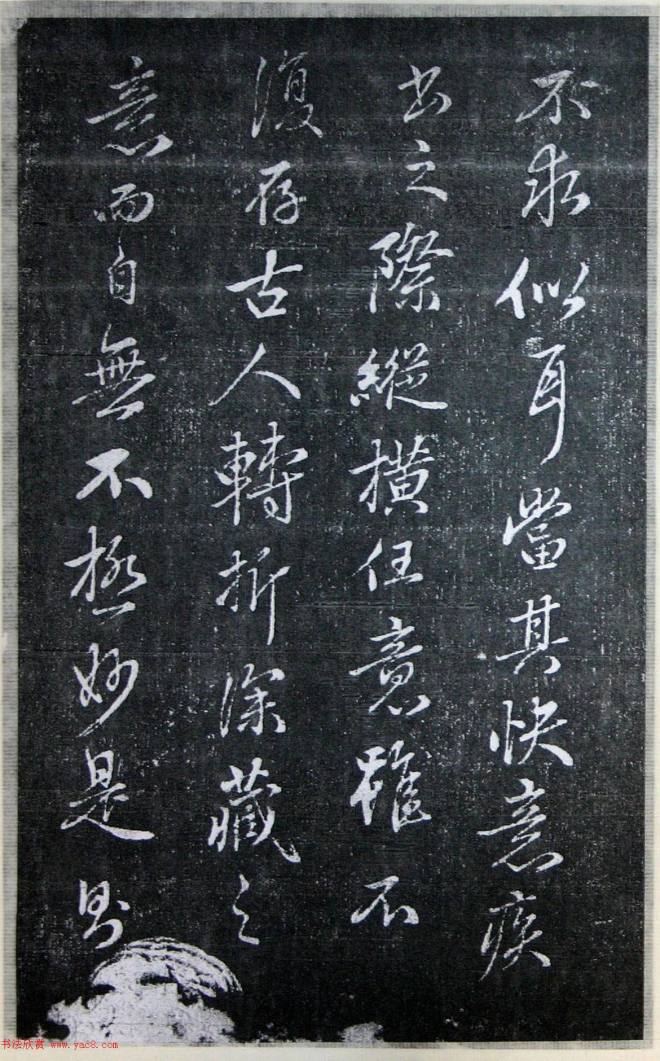 不求似耳當其快意疾
書之際縱橫任意雖不
復存古人轉折深藏之
意而自無不極妙是則
书法欣赏 www.yac8.com